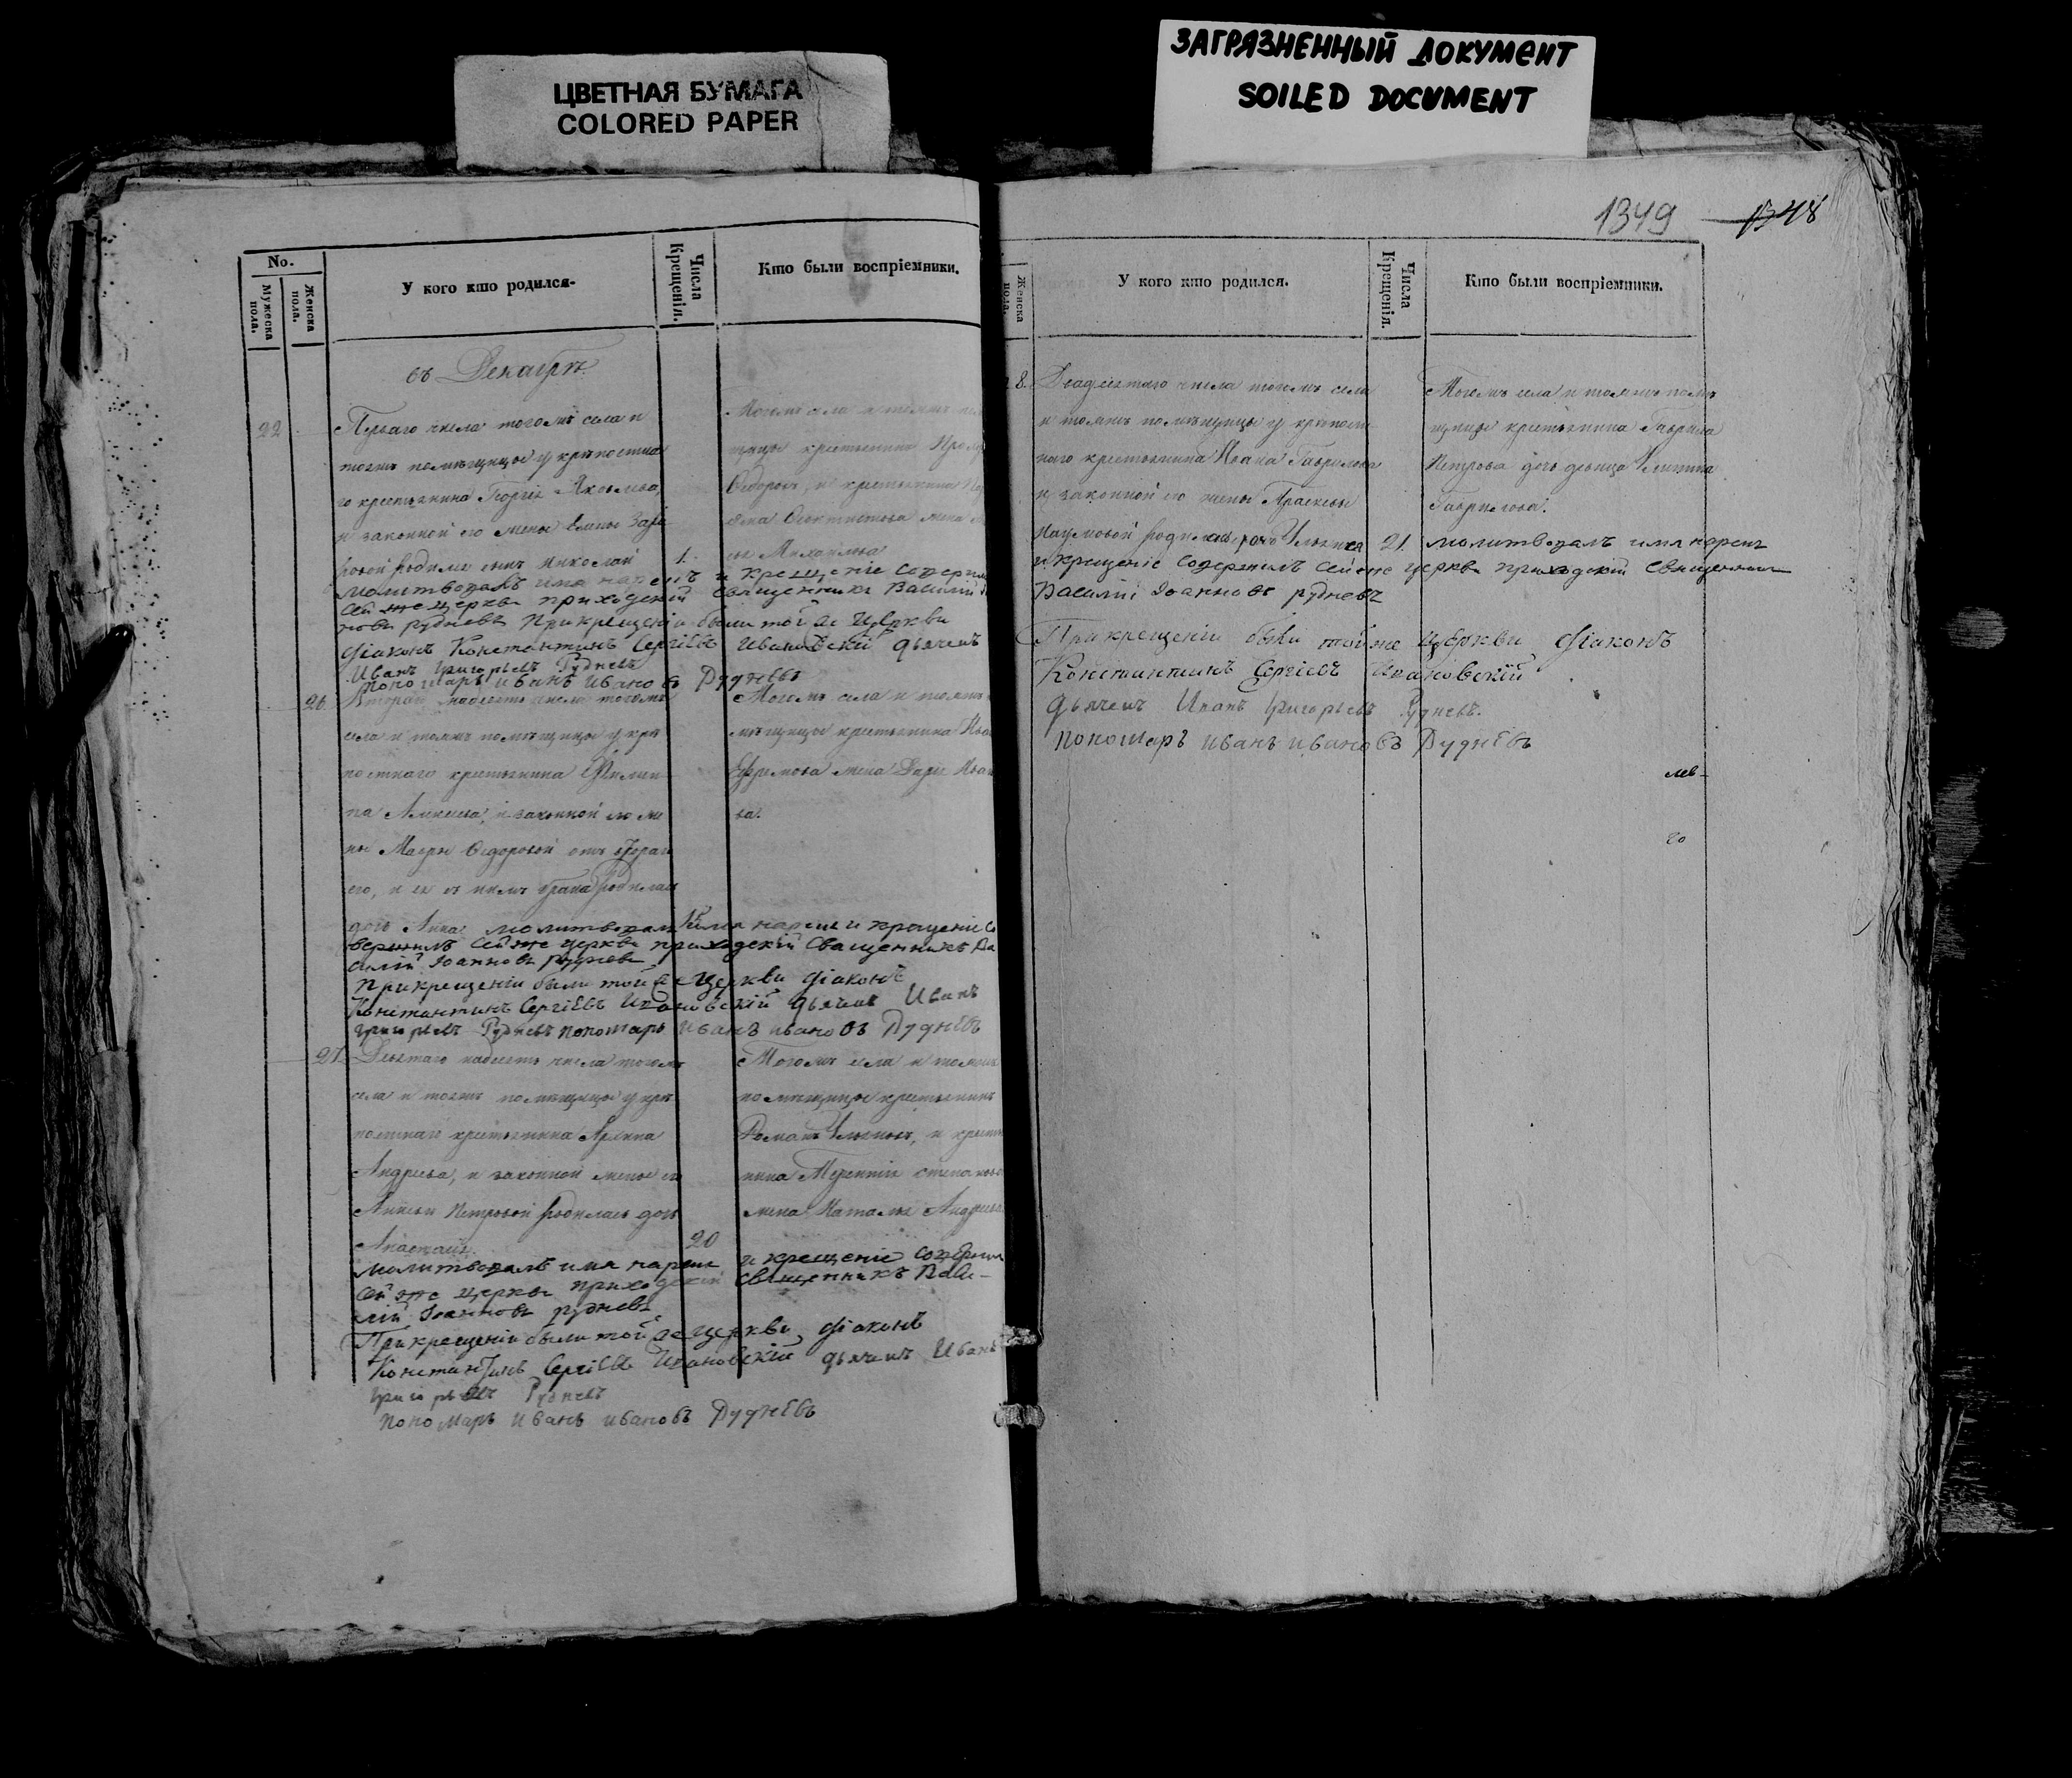 ЦВЕТНАЯ БУМАГА
COLORED PAPER
ЗАГРЯЗНЕННЫЙ ДОКУМЕНТ
SOILED DOCUMENT
1349 1348
No.
Мужеска пола.
Женска пола.
У кого кто родился.
Числа Крещенія.
Кто были воспріемники.
въ Декабрѣ
22
Перваго числа тогожъ села и
тоежъ помѣщицы у крѣпостна
го крестьянина Георгія Яковлева,
и законной его жены Елены Заха
ровой родился сынъ Николай
1.
молитвовалъ имя нарекъ и крещеніе соверши
сей же церкви приходскій священникъ Василій
новъ рудневъ При крещеніи были той же Церкви
діаконъ Константинъ Сергіевъ Ивановскій дьячекъ
Иванъ григорьевъ Рудневъ
пономарь иванъ ивановъ Рудневъ
Ѳедоровъ, и крестьянина
жена
Михайлова
26.
Вторагонадесять числа тогожъ
села и тоежъ помѣщицы у крѣ
постнаго крестьянина Филип
па Алексѣева, и законной его же
ны Мавры Ѳедоровой отъ втораго
его, и ея съ нимъ брака родилась
дочь Анна молитвовалъ имя нарекъ и крещеніе со
вершилъ Сей же церкви приходскій Священникъ Ва
силій Іоанновъ рудневъ
При крещеніи были той же Церкви діаконъ
Константинъ Сергіевъ Ивановскій дьячекъ Иванъ
григорьевъ Рудневъ пономарь иванъ ивановъ Рудневъ
Тогожъ села и тоежъ
мѣщицы крестьянина Ива
Ефремова жена Дарія Ива
ва.
27.
Девятагонадесять числа тогожъ
села и тоежъ помѣщицы у крѣ
постнаго крестьянина
Андреева, и законной жены его
Петровой родилась дочь
Анастасія.
20
молитвовалъ имя нарекъ и крещеніе соверши
сей же церкви приходскій священникъ Васи-
лій Іоанновъ рудневъ
При крещеніи были той же Церкви діаконъ
Константинъ Сергіевъ Ивановскій дьячекъ Иванъ
григорьевъ Рудневъ
пономарь иванъ ивановъ Рудневъ
Тогожъ села и тоежъ
помѣщицы крестьянинъ
Романъ и крестья
нина Терентія Степанова
жена Наталія Андреева
Женска пола.
У кого кто родился.
Числа Крещенія.
Кто были воспріемники.
8.
Двадцятаго числа тогожъ села
и тоежъ помѣщицы у крѣпост
наго крестьянина Ивана Гаврилова
и законной его жены Параскевы
Наумовой родилась дочь
21.
молитвовалъ имя нарекъ
и крещеніе совершилъ Сей же церкви приходскій Священникъ
Василій Іоанновъ рудневъ
При крещеніи были той же Церкви діаконъ
Константинъ Сергіевъ Ивановскій
дьячекъ Иванъ григорьевъ Рудневъ.
пономарь иванъ ивановъ Рудневъ
Тогожъ села и тоежъ помѣ
щицы крестьянина Гаврила
Петрова дочь дѣвица
Гаврилова.
лев-
го